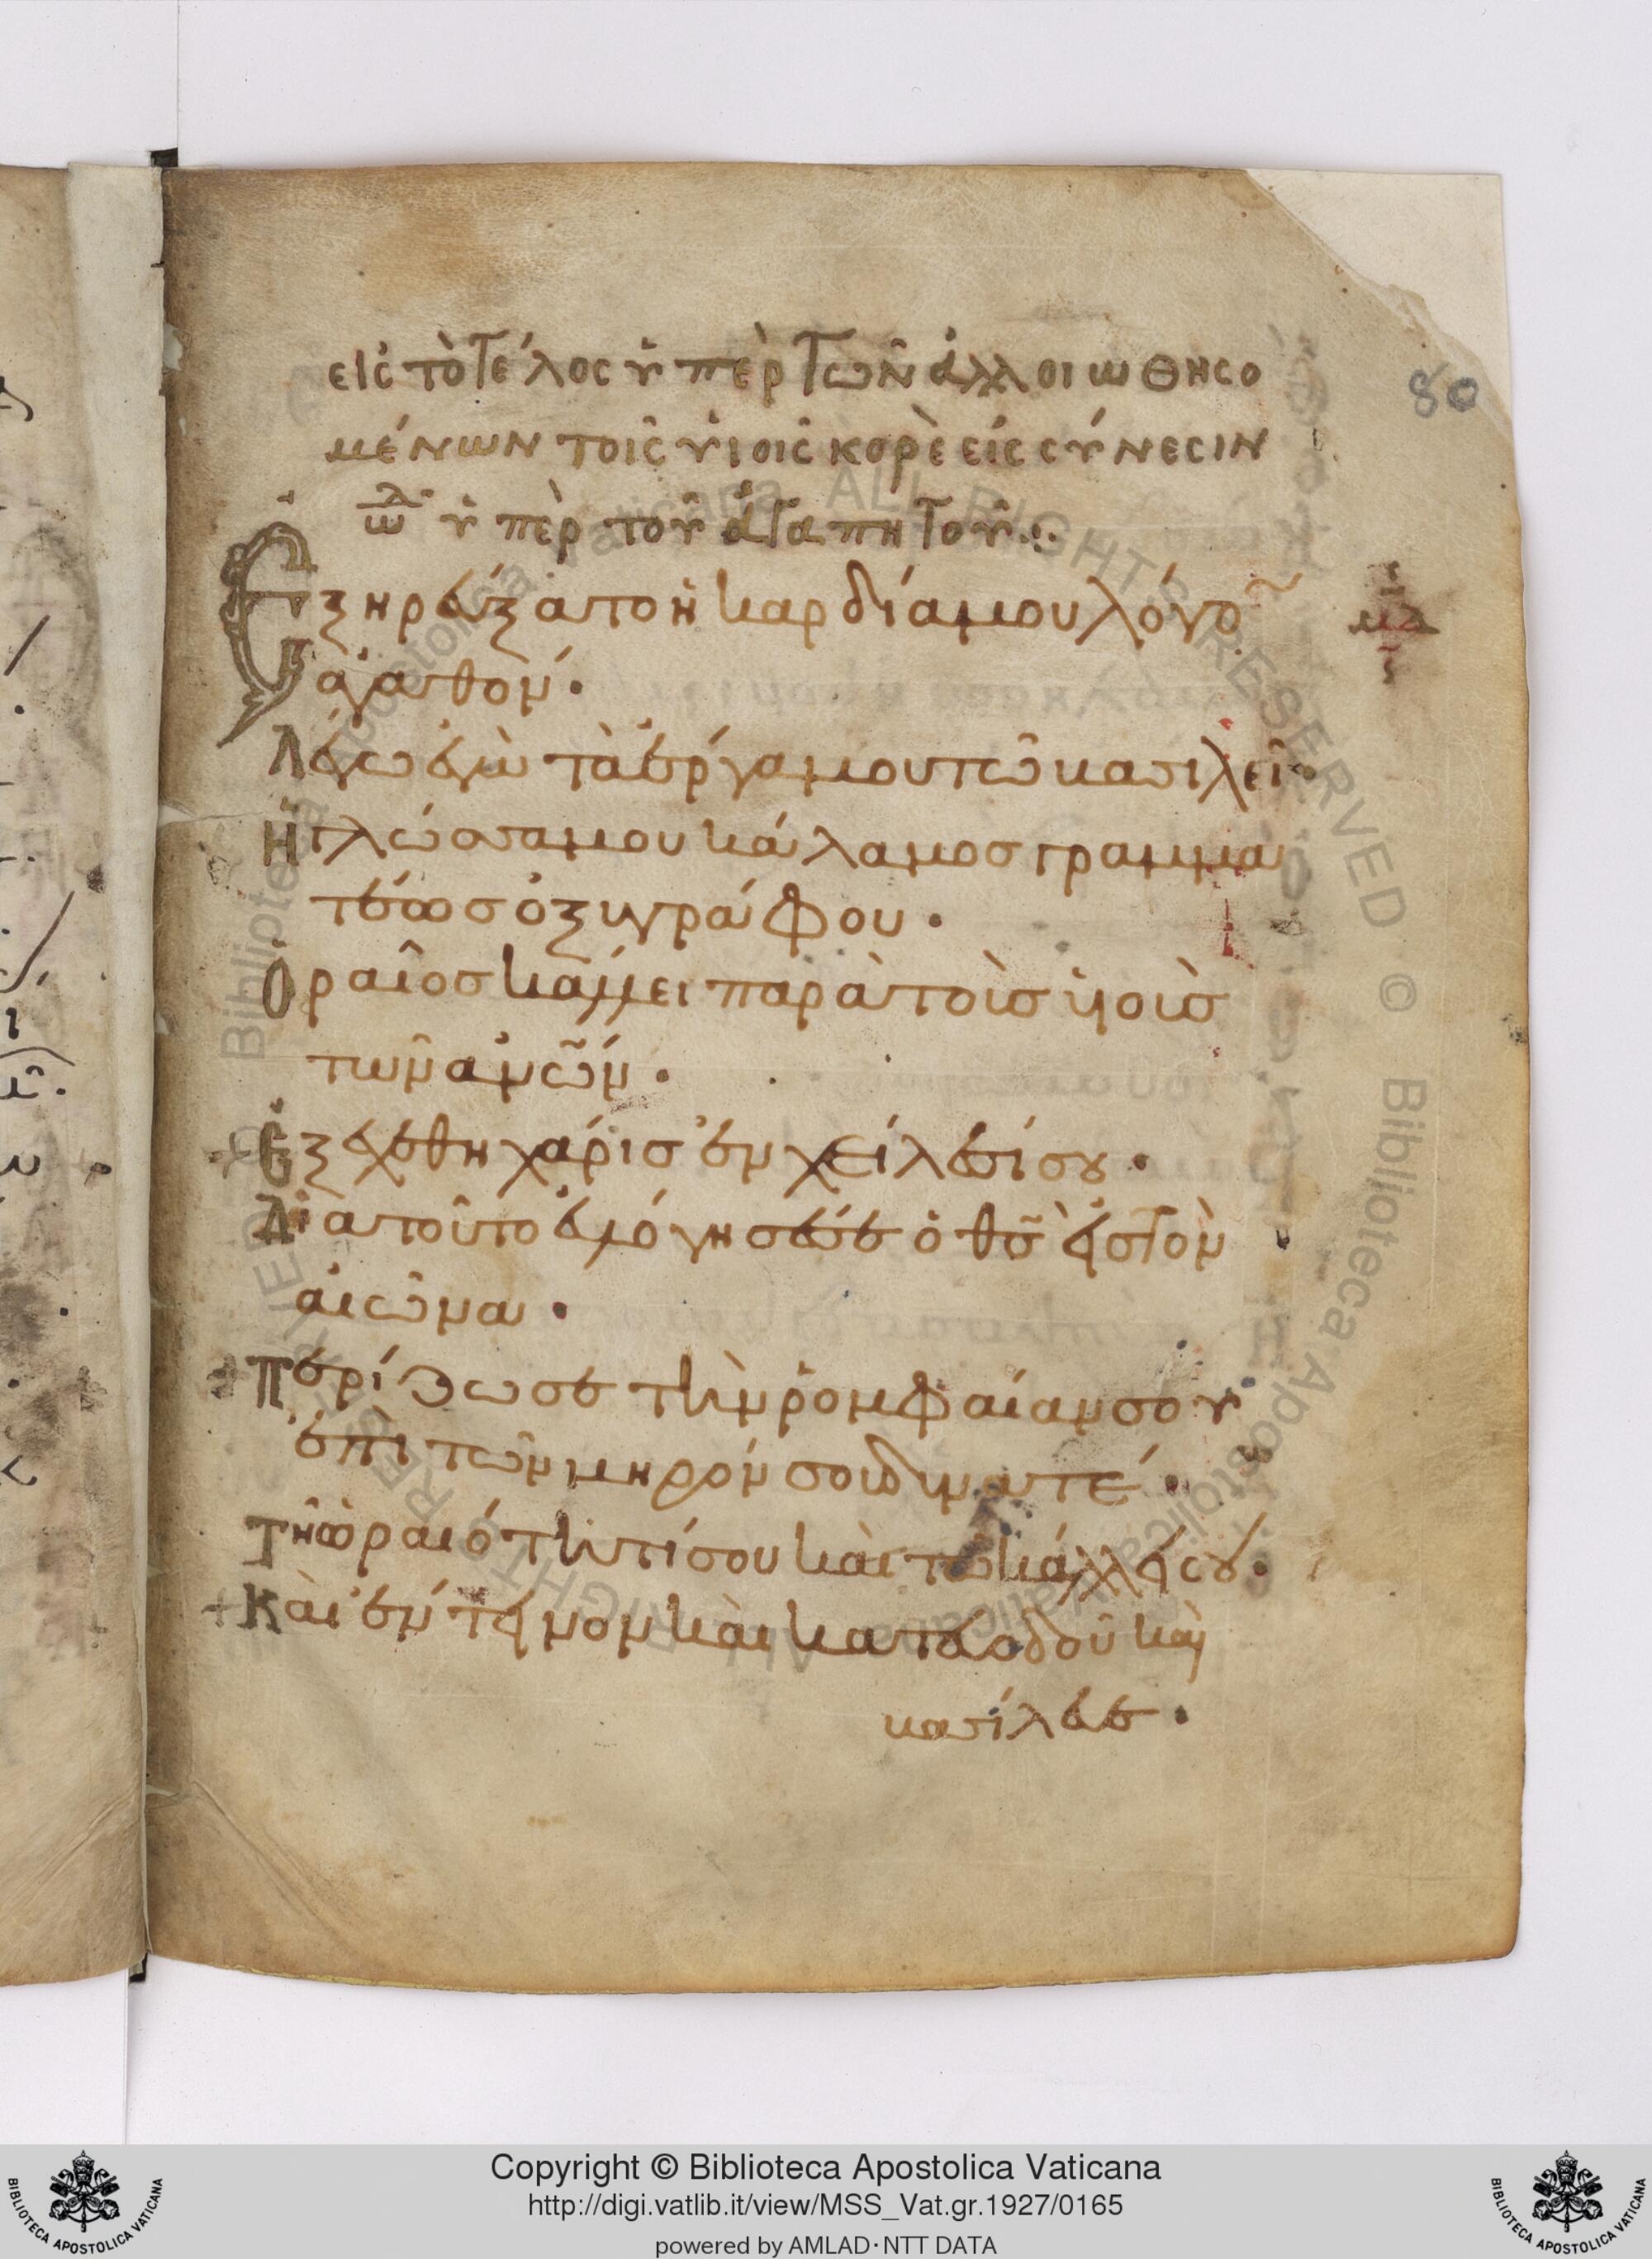 εἰς τὸ τέλος ὑπὲρ τῶν ἀλλοιωθησο
80
μένων τοῖς ὑϊοῖς κορὲ εἰς σύνεσιν
ὑπὲρ τοῦ ἀγαπητοῦ
Ἐξηρεύξατο ἡ καρδία μου λόγο
μδ
ἀγαθόν·
Λέγω ἐγὼ τὰ ἔργα μου τῶ βασιλεῖ·
Ἡ γλώσσα μου κάλαμος γραμμα
τέως ὀξυγράφου·
Ὁραῖος κάλλει παρὰ τοὶς ὑιοὶς
τῶν ἀνῶν·
Ἐξεχέθη χάρις ἐν χείλεσί σου·
Διατοῦτο ἐυλόγησέ σε ὁ θς εἰς τὸν
ἀιῶνα·
Περίζωσε τὴν ῥομφαίαν σου
ἐπι τῶν μηρόν σου δυνατέ·
Τῆ ὡραιότητί σου καὶ τῶ κάλλει σου·
Καὶ ἔντεινον καὶ κατευοδοῦ καὶ
βασίλευε·
Copyright © Biblioteca Apostolica Vaticana
http://digi.vatlib.it/view/MSS_Vat.gr.1927/0165
powered by AMLAD·NTT DATA
BIBLIOTECA APOSTOLICA VATICANA
BIBLIOTECA APOSTOLICA VATICANA